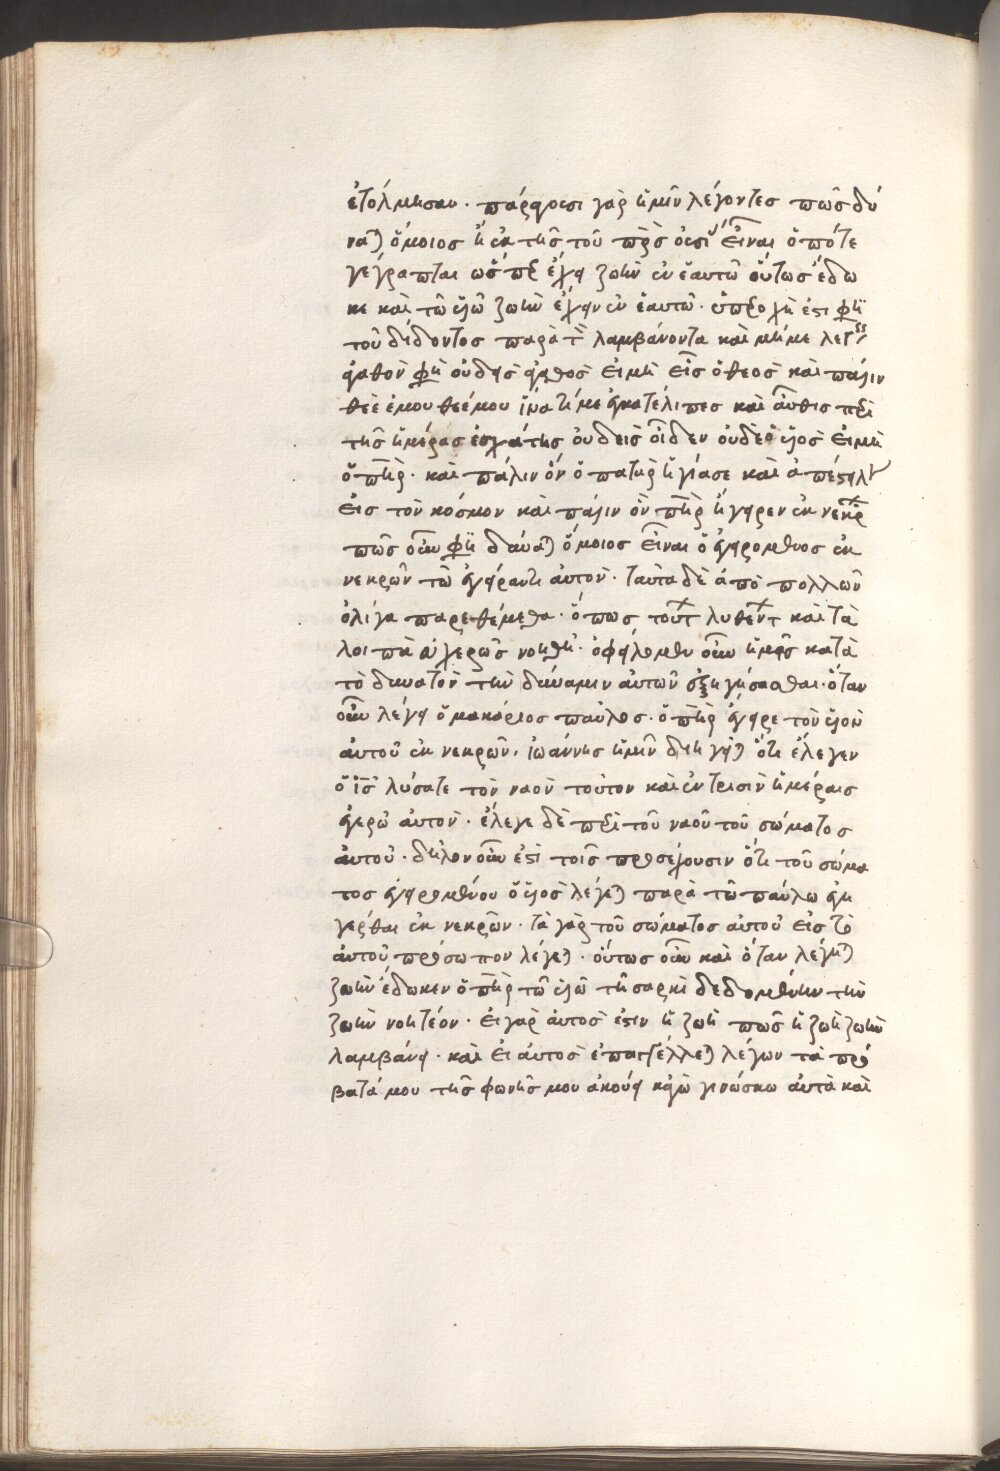 ἐτόλμησαν · πάρφουσι γὰρ ἡμῖν λέγοντες πῶς δύ
ναται ὅμοιος ἢ ἐκ τῆς τοῦ πρς οὐσί εἶναι ὁπότε
γέγραπται ὥσπερ ἔχει ζωὴν ἐν ἑαυτῶ οὕτως ἔδω
κε καὶ τῶ υἱῶ ζωὴν ἔχειν ἐν ἑαυτῶ · ὑπεροχή ἐστι φη
τοῦ διδόντος παρὰ τὸν λαμβάνοντα καὶ μή με λεγ
ἀγαθὸν φη οὐδεὶς ἀγαθὸς εἰ μὴ εἷς ὁ θεὸς καὶ πάλιν
θεέ ἐμου θεέ μου ἵνα τί με ἐγκατέλιπες καὶ αὖθις περὶ
τῆς ἡμέρας ἐσχάτης οὐδεὶς οἶδεν οὐδὲ ὁ υἱὸς εἰ μὴ
ὁ πηρ · καὶ πάλιν ὃν ὁ πατὴρ ἡγίασε καὶ ἀπέστειλεν
εἰς τὸν κόσμον καὶ πάλιν ὃν πηρ ἤγειρεν ἐκ νεκρῶν
πῶς οὖν φη δύναται ὅμοιος εἶναι ὁ ἐγειρόμενος ἐκ
νεκρῶν τῶ ἐγείραντι αὐτόν · ταῦτα δὲ ἀπὸ πολλῶν
ὀλίγα παρεθέμεθα · ὅπως τούτων λυθέντων καὶ τὰ
λοιπὰ εὐχερῶς νοηθῆ · ὀφείλομεν οὖν ἡμεῖς κατὰ
τὸ δυνατὸν τὴν δύναμιν αὐτῶν ἐξηγήσασθαι · ὅταν
οὖν λέγει ὁ μακάριος παῦλος · ὁ πηρ ἤγειρε τὸν υἱὸν
αὐτοῦ ἐκ νεκρῶν, ἰωάννης ἡμῖν διηγεῖται ὅτι ἔλεγεν
ὁ ἰς λύσατε τὸν ναὸν τοῦτον καὶ ἐν τρισὶν ἡμέραις
ἐγερῶ αὐτόν · ἔλεγε δὲ περὶ τοῦ ναοῦ τοῦ σώματος
αὐτοῦ · δῆλον οὖν ἐστὶ τοῖς προσέχουσιν ὅτι τοῦ σώμα
τος ἐγειρομένου ὁ υἱὸς λέγεται παρὰ τῶ παύλω ἐγη
γέρθαι ἐκ νεκρῶν · τὰ γὰρ τοῦ σώματος αὐτοῦ εἰς τὸ
αὐτοῦ πρόσωπον λέγεται · οὕτως οὖν καὶ ὅταν λέγηται
ζωὴν ἔδωκεν ὁ πηρ τῶ υἱῶ τῆ σαρκὶ δεδομένην τὴν
ζωὴν νοητέον · εἰ γὰρ αὐτός ἐστιν ἡ ζωὴ πῶς ἡ ζωὴ ζωὴν
λαμβάνει · καὶ εἰ αὐτὸς ἐπαγγέλλεται λέγων τὰ πρό
βατά μου τῆς φωνῆς μου ἀκούει κἀγὼ γινώσκω αὐτὰ καὶ